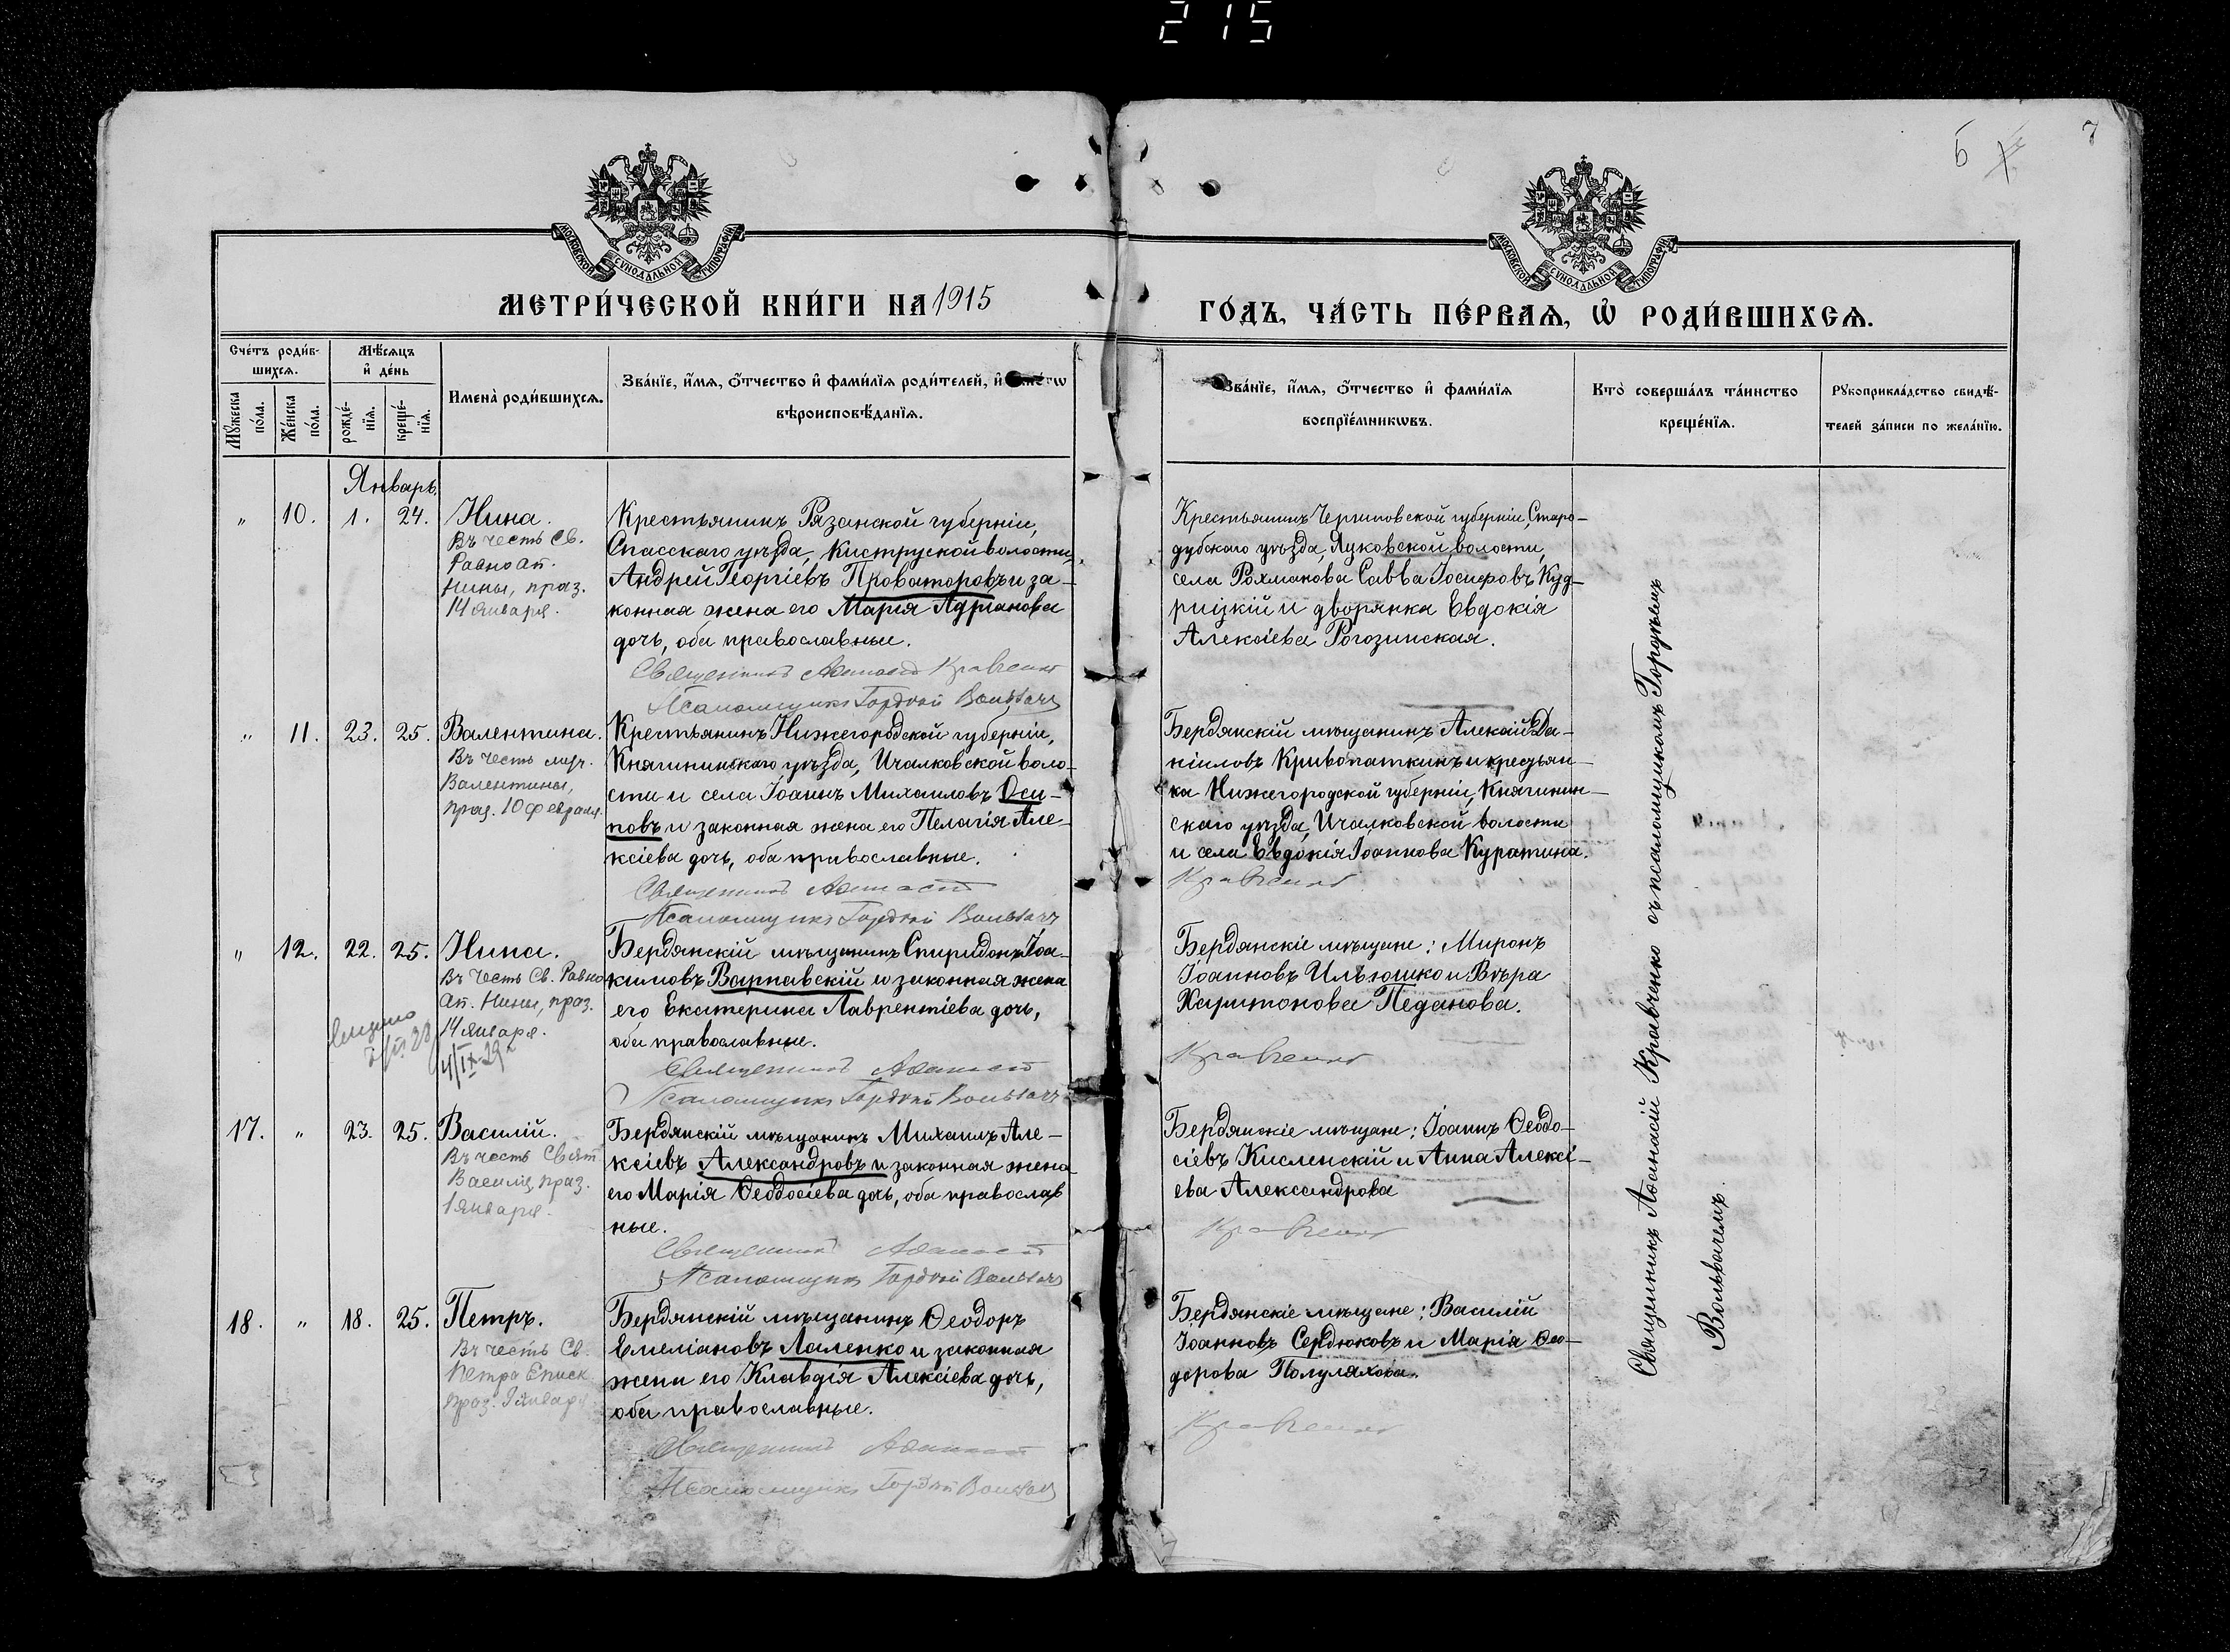 215
Б
7
МОСКОВСКОЙ СУНОДАЛЬНОЙ ТИПОГРАФІИ
МОСКОВСКОЙ СУНОДАЛЬНОЙ ТИПОГРАФІИ
МЕТРИ́ЧЕСКОЙ КНИ́ГИ НА 1915
ГО́ДЪ, ЧА́СТЬ ПЕ́РВАѦ, Ѽ РОДИ́ВШИХСѦ.
Сче́тъ роди́в-
шихсѧ.
Мѣ́сѧцъ
и҆ де́нь
Мꙋ́жеска
по́ла.
Же́нска
по́ла.
рожде́-
нїѧ.
креще́-
нїѧ.
И҆мена̀ роди́вшихсѧ.
Зва́нїе, и҆́мѧ, ѻ҆́тчество и҆ фами́лїѧ роди́телей, и҆
вѣроисповѣ́данїѧ.
Зва́нїе, и҆́мѧ, ѻ҆́тчество и҆ фами́лїѧ
воспрїе́мникѡвъ.
Кто̀ соверша́лъ та́инство
креще́нїѧ.
Рꙋкоприкла́дство свидѣ́-
телей за́писи по жела́нїю.
Январь.
" 10. 1. 24. Нина.
Въ честь Св.
Равноап.
Нины, праз.
14 января.
Крестьянинъ Рязанской губерніи,
Спасскаго уѣзда, Киструской волости,
Андрей Георгіевъ Проваторовъ и за-
конная жена его Марія Адріанова
дочь, оба православные.
Священникъ Афанасій Кравченко
Псаломщикъ Гордѣй Вольвачъ
Крестьянинъ Черниговской губерніи, Старо-
дубскаго уѣзда, Лужковской волости,
села Рохманова Савва Іосифовъ Куд-
рицкій и дворянка Евдокія
Алексіева Рогозинская.
" 11. 23. 25. Валентина.
Въ честь муч.
Валентины,
праз. 10 февраля.
Крестьянинъ Нижегородской губерніи,
Княгининскаго уѣзда, Ичалковской воло-
сти и села Іоаннъ Михаиловъ Оси-
повъ и законная жена его Пелагія Але-
ксіева дочь, оба православные.
Священникъ Афанасій
Псаломщикъ Гордѣй Вольвачъ
Бердянскій мѣщанинъ Алексій Да-
ніиловъ Кривопаткинъ и крестьян-
ка Нижегородской губерніи, Княгинин-
скаго уѣзда, Ичалковской волости
и села Евдокія Іоаннова Куратина.
Кравченко
" 12. 22. 25. Нина.
Въ честь Св. Равно
ап. Нины, праз.
14 января.
Бердянскій мѣщанинъ Спиридонъ Іоа-
кимовъ Варнавскій и законная жена
его Екатерина Лаврентіева дочь,
оба православные.
Священникъ Афанасій
Псаломщикъ Гордѣй Вольвачъ
Бердянскіе мѣщане: Миронъ
Іоанновъ Ильюшко и Вѣра
Харитонова Педанова.
Кравченко
17. " 23. 25. Василій.
Въ честь Свят.
Василія, праз.
1 января.
Бердянскій мѣщанинъ Михаилъ Але-
ксіевъ Александровъ и законная жена
его Марія Ѳеодосіева дочь, оба православ
ные.
Священникъ Афанасій
Псаломщикъ Гордѣй Вольвачъ
Бердянскіе мѣщане: Іоаннъ Ѳеодо-
сіевъ Кисленскій и Анна Алексі-
ева Александрова
Кравченко
18. " 18. 25. Петръ.
Въ честь Св.
Петра Еписк.
праз. 9 января
Бердянскій мѣщанинъ Ѳеодоръ
Емеліановъ Лаленко и законная
жена его Клавдія Алексіева дочь,
оба православные.
Священникъ Афанасій
Псаломщикъ Гордѣй Вольвачъ
Бердянскіе мѣщане: Василій
Іоанновъ Сердюковъ и Марія Ѳео-
дорова Полуляхова.
Кравченко
Священникъ Аѳанасій Кравченко съ псаломщикомъ Гордѣемъ
Вольвачемъ.